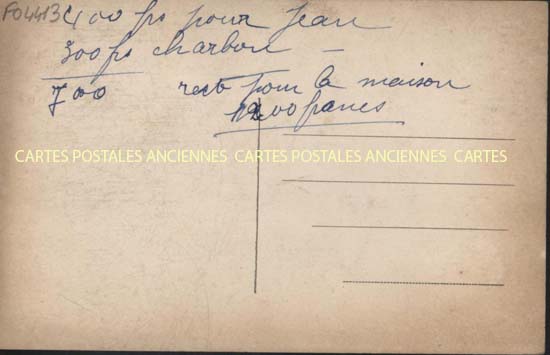 F04413
400 frs pour Jean
300 frs charbon —
700 reste pour la maison
1200 francs
CARTES POSTALES ANCIENNES CARTES POSTALES ANCIENNES CARTES